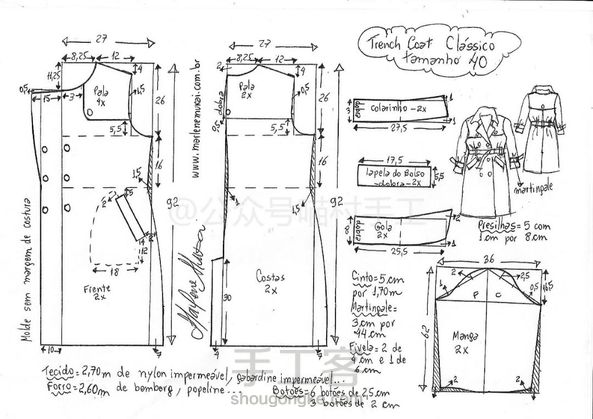 Trench Coat Clássico
tamanho 40
27
8,25
12
11,25
4
0,5
15
3
Pala
4x
1,5
26
5,5
16
15
92
2
15
2
18
Frente
2x
10
3
Molde sem margem de costura
www.marlenemukai.com.br
Marlene Mukai
27
8,25
12
2
4
dobra
Pala
2x
1,5
26
5,5
16
15
1
92
30
Costas
2x
4
3
dobra
colarinho-2x
1
1
27,5
17,5
Lapela do Bolso
-dobra-2x
5,5
8
dobra
Gola
2x
2
1
25,5
martingale
Presilhas=5 com
1 cm por 8 cm.
Cinto=5cm
por 1,70m
Martingale=
3 cm por
44 cm
Fivela=2 de
4 cm e 1 de
6 cm
36
2
2
0,5
0,5
1
F
C
62
Manga
2x
2
2
Tecido=2,70m de nylon impermeável, gabardine impermeável...
Forro=2,60m de bemberg, popeline...
Botões=6 botões de 2,5cm
botões de 2 cm
@公众号临村手工
手工客
shougongke.com